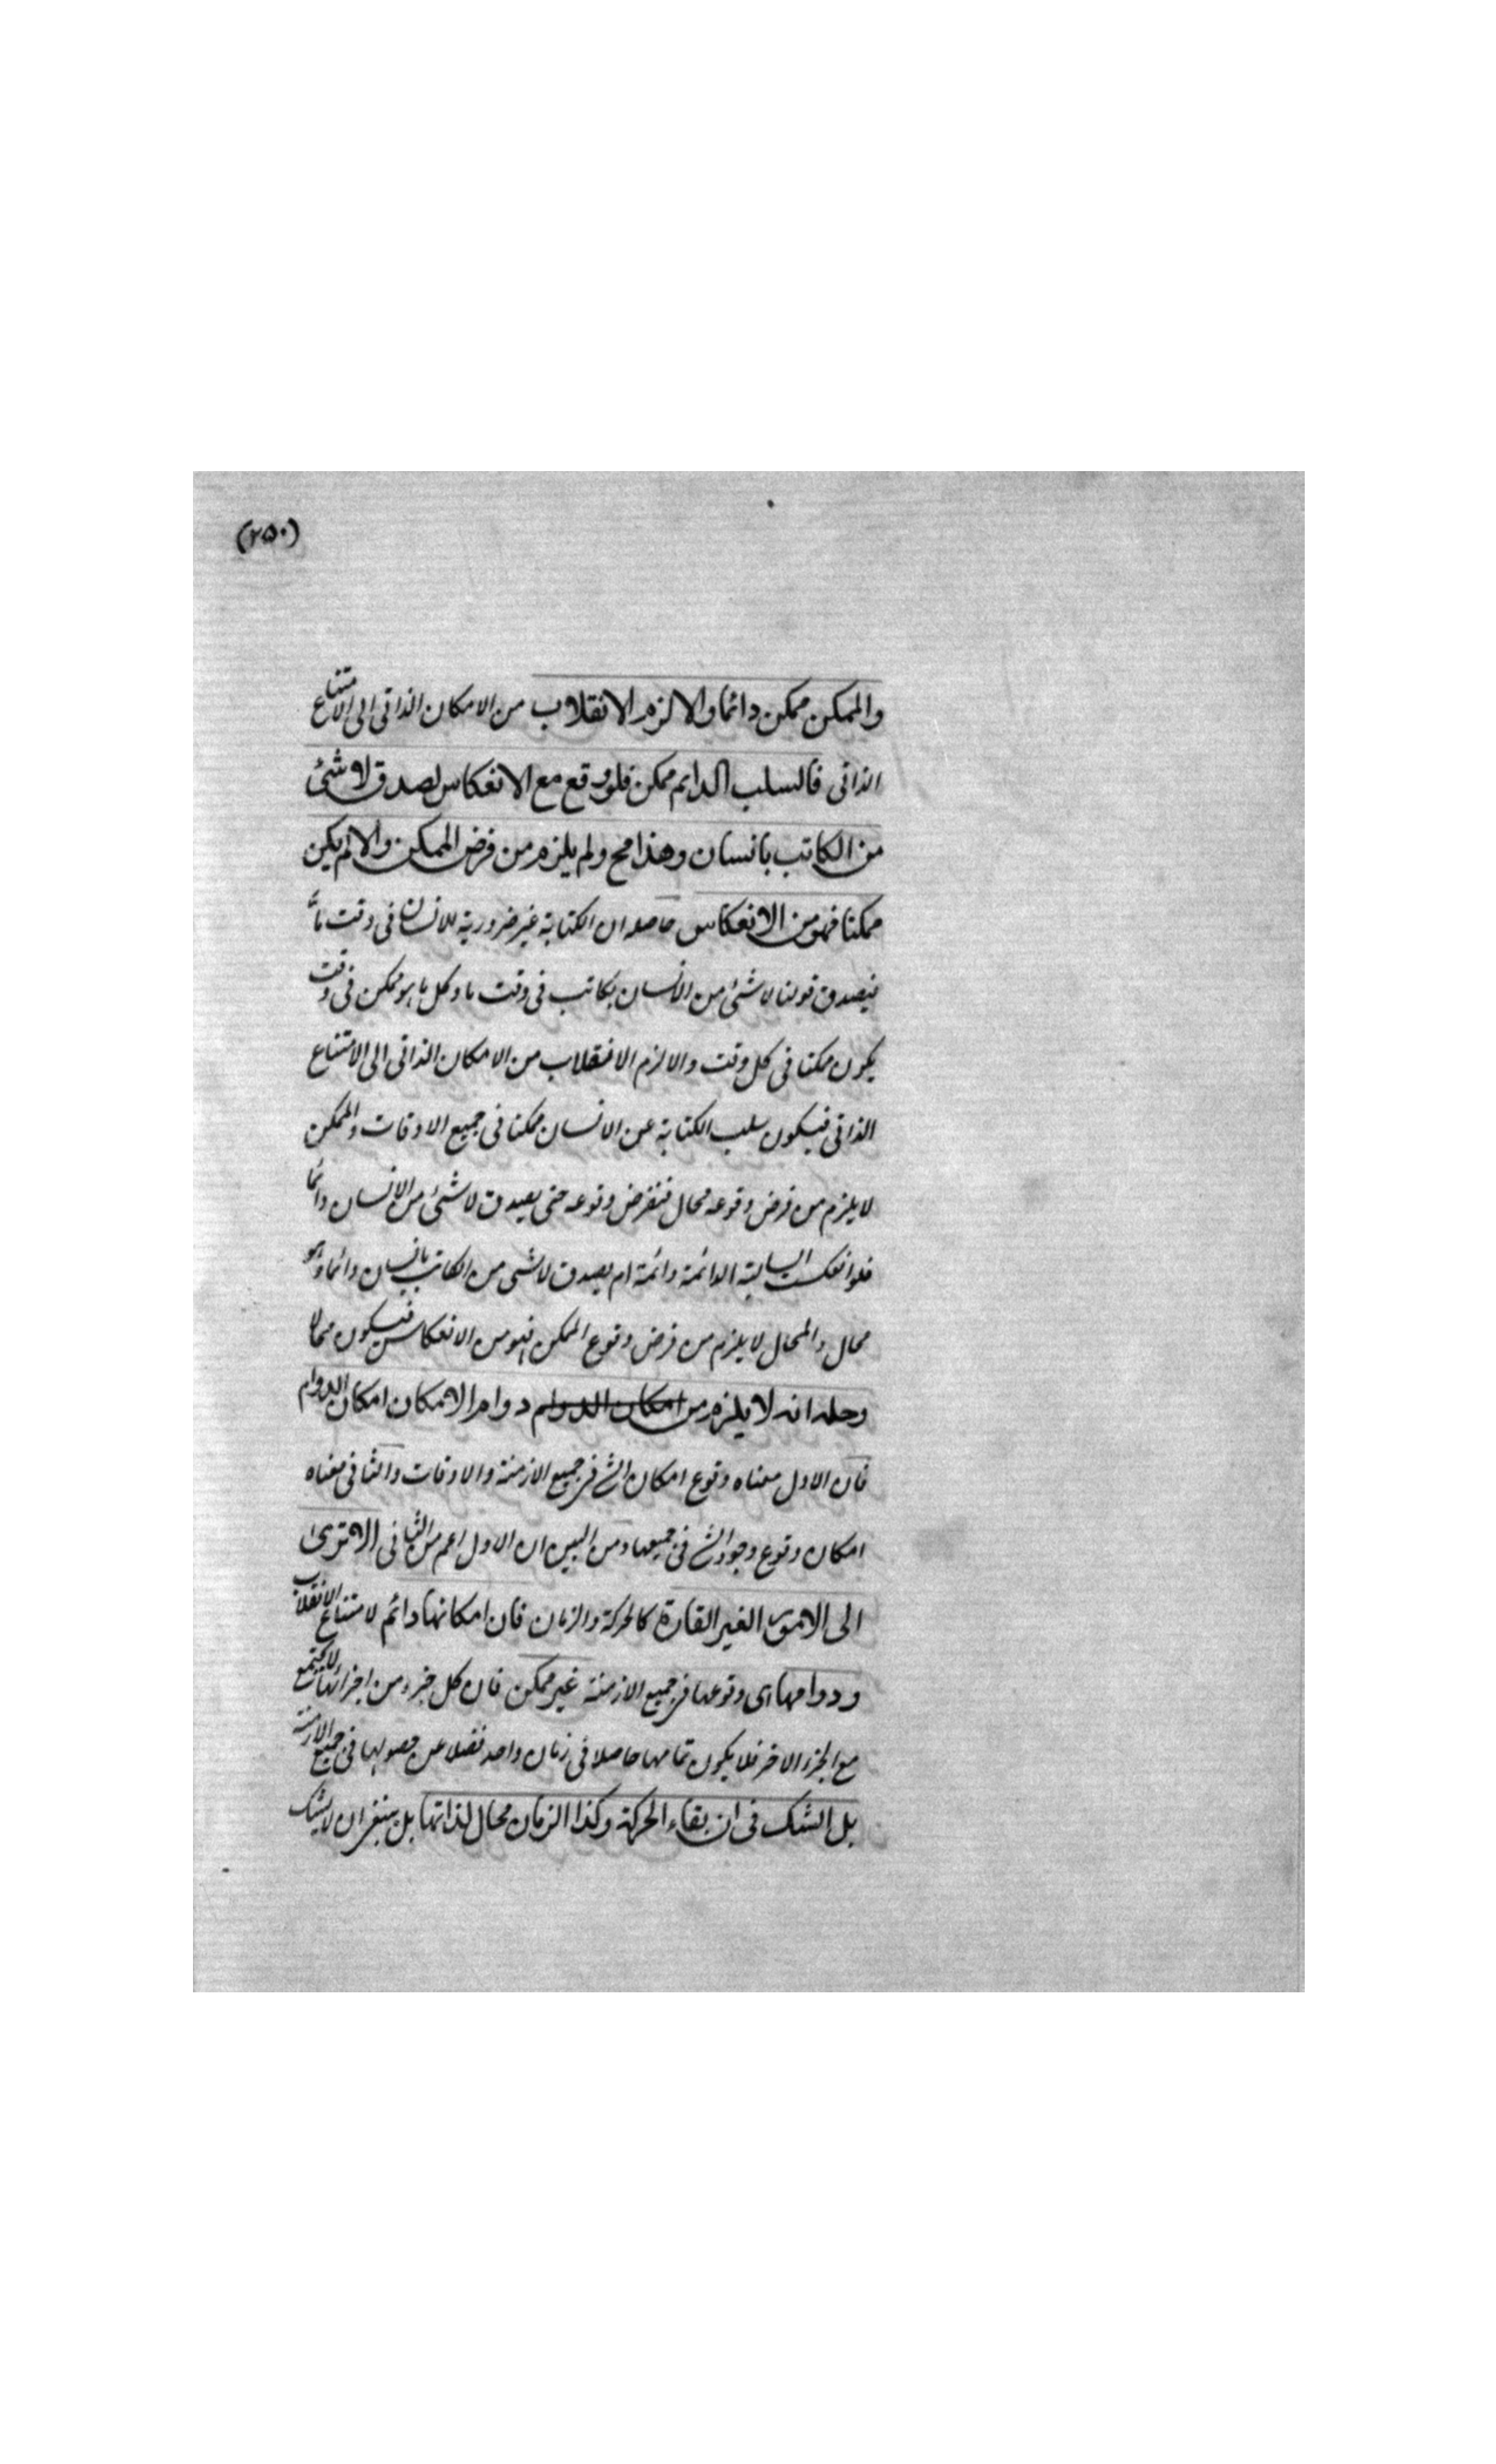 (۲۵۰)
والممكن ممكن دائما والا لزم الانقلاب من الامكان الذاتى الى الامتناع
الذاتى فالسلب الدايم ممكن فلو وقع مع الانعكاس لصدق لا شئ
من الكاتب بانسان وهذا مح ولم يلزم من فرض الممكن والا لم يكن
ممكنا فهو من الانعكاس حاصله ان الكتابة غير ضرورية للانسان فى وقت ما
فيصدق قولنا لا شئ من الانسان بكاتب فى وقت ما وكل ما هو ممكن فى وقت
يكون ممكنا فى كل وقت والا لزم الانقلاب من الامكان الذاتى الى الامتناع
الذاتى فيكون سلب الكتابة عن الانسان ممكنا فى جميع الاوقات والممكن
لا يلزم من فرض وقوعه محال فنفرض وقوعه حتى يصدق لا شئ من الانسان دائما
فلو انعكست السالبة الدائمة دائمة لم يصدق لا شئ من الكاتب بانسان دائما وهو
محال والمحال لا يلزم من فرض وقوع الممكن فهو من الانعكاس فيكون محالا
وحله انه لا يلزم من امكان الدوام دوام الامكان امكان الدوام
فان الاول معناه وقوع امكان الشئ فى جميع الازمنة والاوقات والثانى معناه
امكان وقوع وجود الشئ فى جميعها ومن البين ان الاول اعم من الثانى الا ترى
الى الامور الغير القارة كالحركة والزمان فان امكانها دائم لامتناع الانقلاب
ودوامها اى وقوعها فى جميع الازمنة غير ممكن فان كل جزء من اجزائها لا يجتمع
مع الجزء الاخر فلا يكون تمامها حاصلا فى زمان واحد فضلا عن حصولها فى جميع الازمنة
بل الشك فى ان بقاء الحركة وكذا الزمان محال لذاتها بل ينبغى ان لا يشك